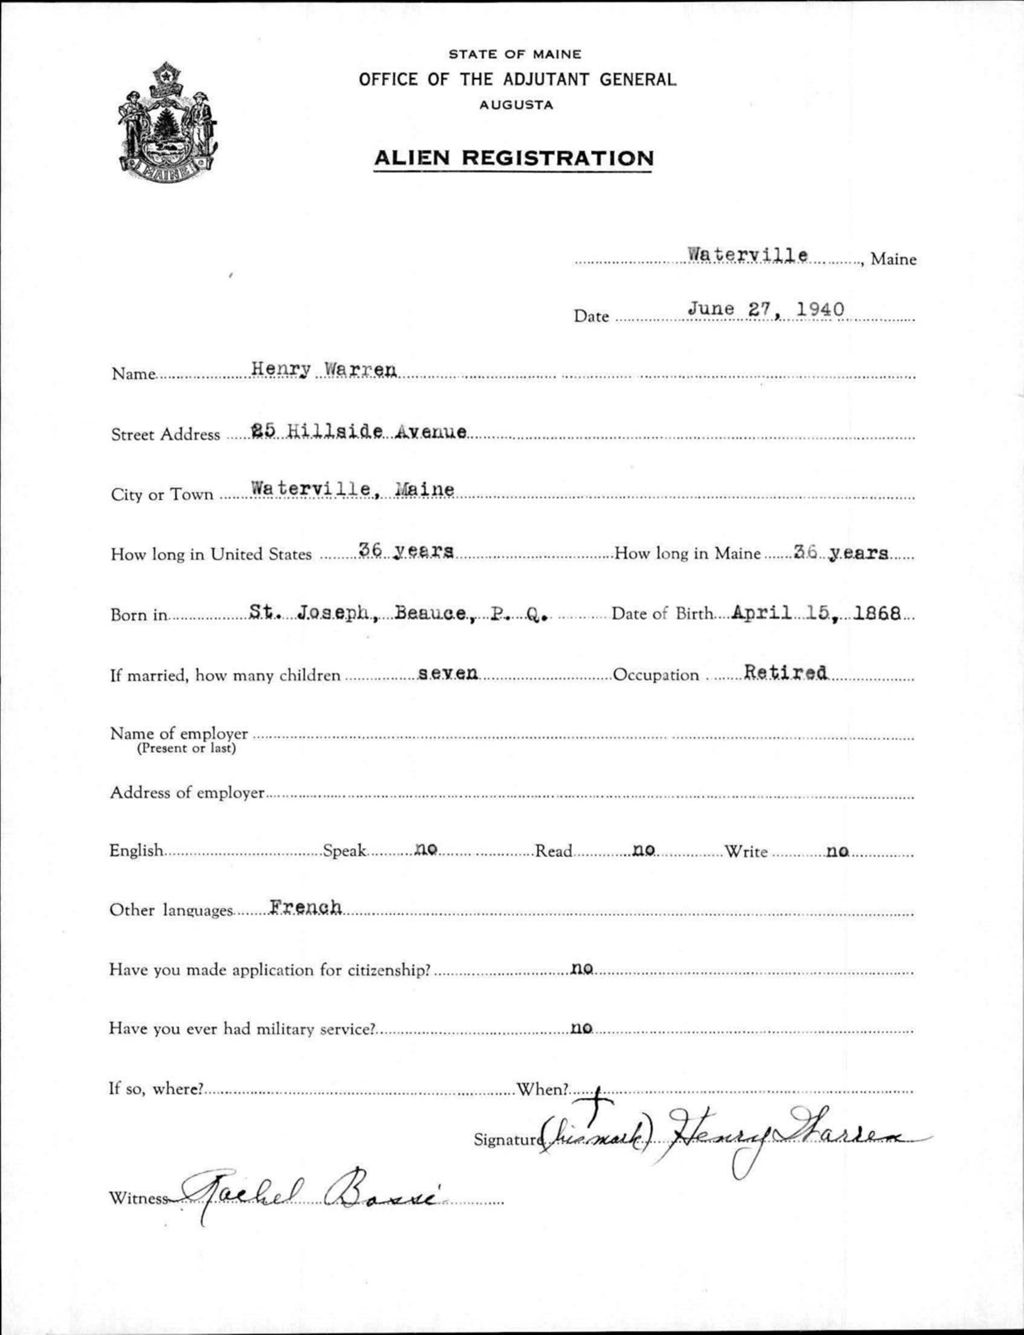 STATE OF MAINE
OFFICE OF THE ADJUTANT GENERAL
AUGUSTA
ALIEN REGISTRATION
MAINE
Waterville, Maine
Date June 27, 1940
Name Henry Warren
Street Address 25 Hillside Avenue
City or Town Waterville, Maine
How long in United States 36 years How long in Maine 36 years
Born in St. Joseph, Beauce, P. Q. Date of Birth April 15, 1868
If married, how many children seven Occupation Retired
Name of employer
(Present or last)
Address of employer
English Speak no Read no Write no
Other languages French
Have you made application for citizenship? no
Have you ever had military service? no
If so, where? When?
Signature (his mark) Henry Warren
Witness Rachel Bossé